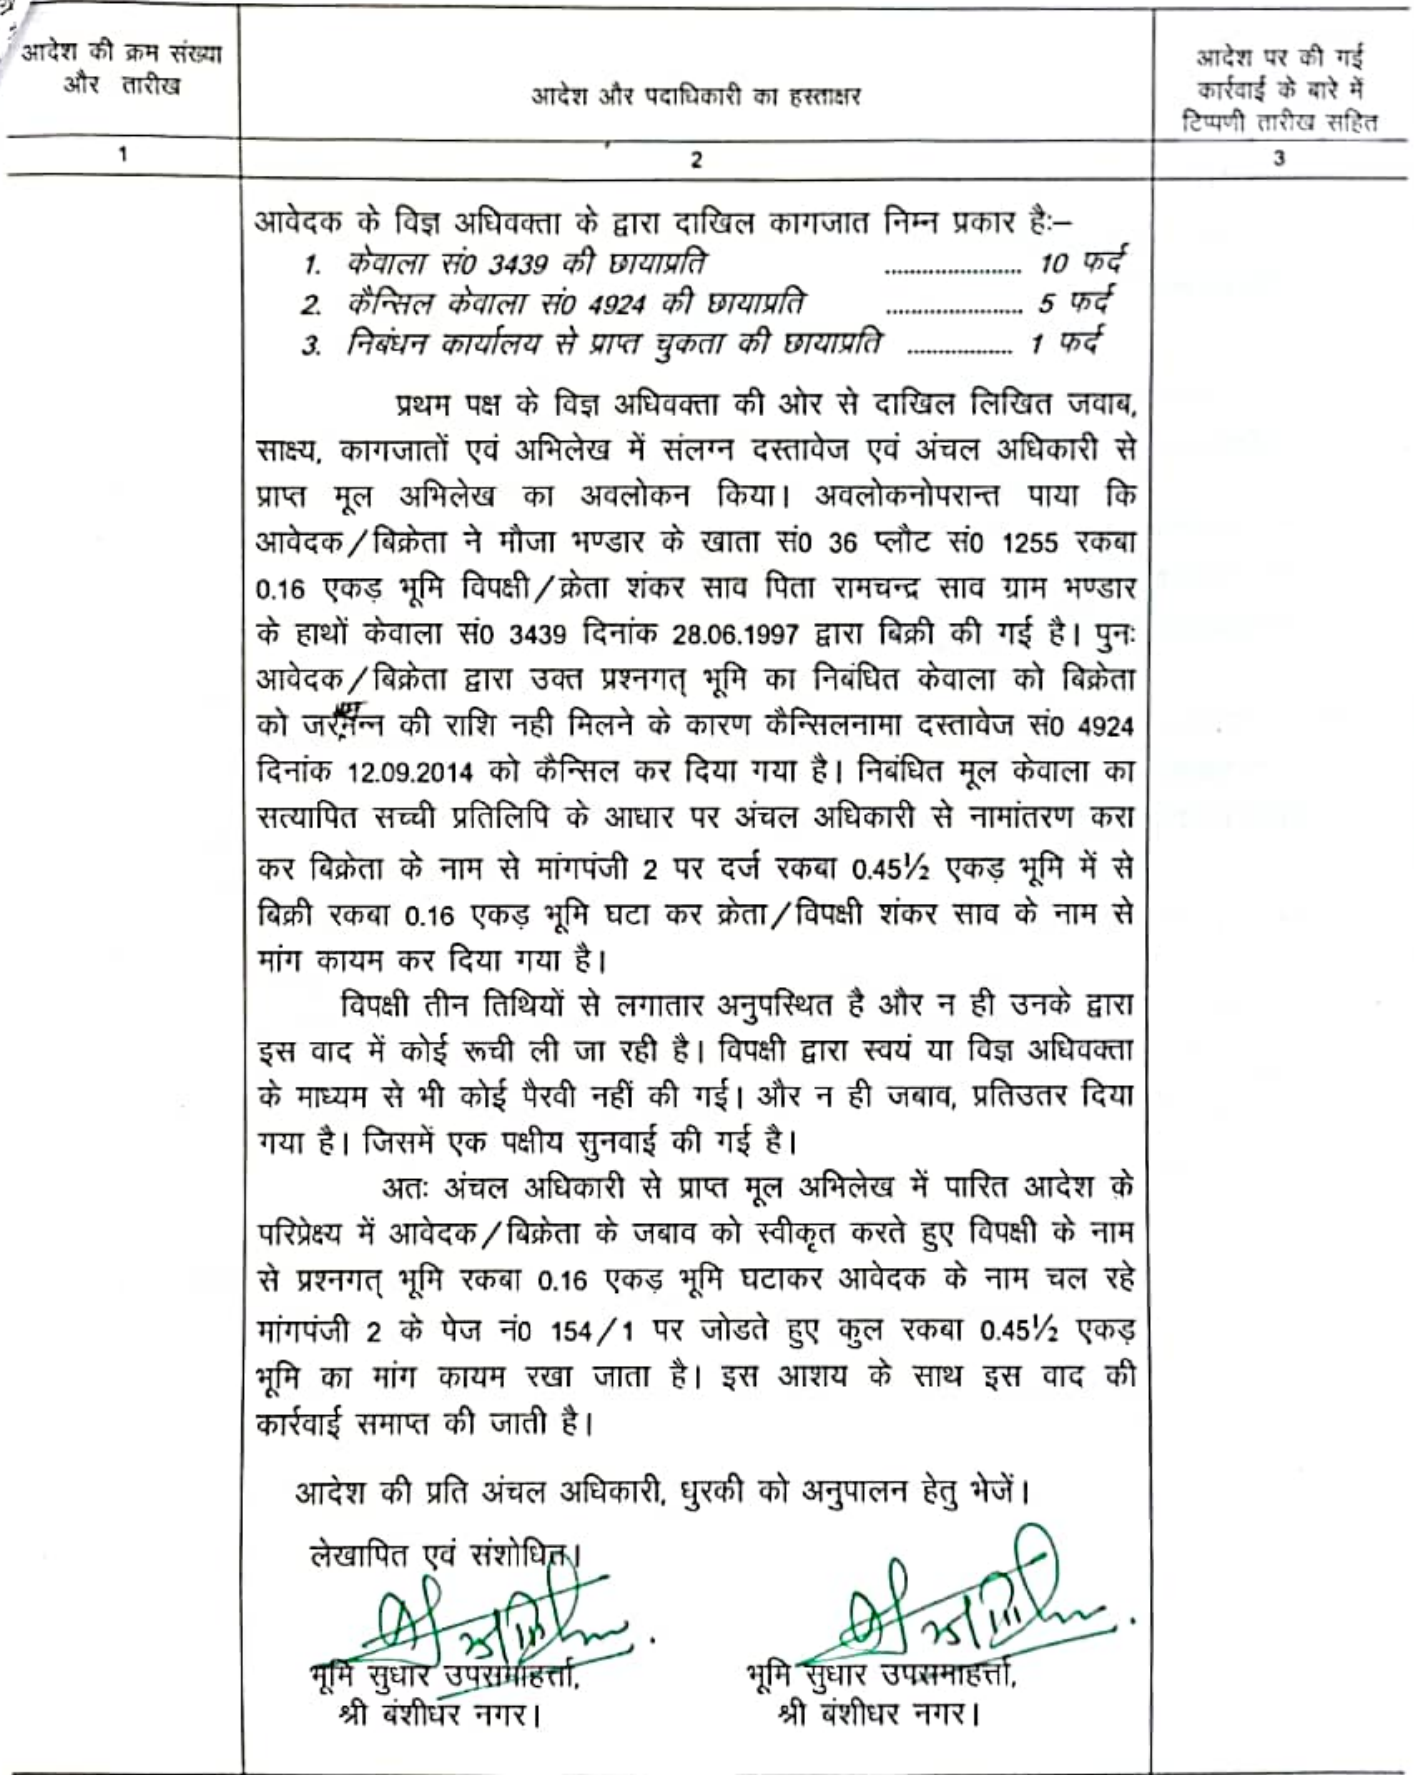 आदेश की क्रम संख्या
और तारीख
आदेश और पदाधिकारी का हस्ताक्षर
आदेश पर की गई
कार्रवाई के बारे में
टिप्पणी तारीख सहित
1
2
3
आवेदक के विज्ञ अधिवक्ता के द्वारा दाखिल कागजात निम्न प्रकार है:–
1. केवाला सं0 3439 की छायाप्रति ....................... 10 फर्द
2. कैन्सिल केवाला सं0 4924 की छायाप्रति ....................... 5 फर्द
3. निबंधन कार्यालय से प्राप्त चुकता की छायाप्रति .................. 1 फर्द
प्रथम पक्ष के विज्ञ अधिवक्ता की ओर से दाखिल लिखित जवाब,
साक्ष्य, कागजातों एवं अभिलेख में संलग्न दस्तावेज एवं अंचल अधिकारी से
प्राप्त मूल अभिलेख का अवलोकन किया। अवलोकनोपरान्त पाया कि
आवेदक/बिक्रेता ने मौजा भण्डार के खाता सं0 36 प्लौट सं0 1255 रकबा
0.16 एकड़ भूमि विपक्षी/क्रेता शंकर साव पिता रामचन्द्र साव ग्राम भण्डार
के हाथों केवाला सं0 3439 दिनांक 28.06.1997 द्वारा बिक्री की गई है। पुनः
आवेदक/बिक्रेता द्वारा उक्त प्रश्नगत् भूमि का निबंधित केवाला को बिक्रेता
को की राशि नही मिलने के कारण कैन्सिलनामा दस्तावेज सं0 4924
दिनांक 12.09.2014 को कैन्सिल कर दिया गया है। निबंधित मूल केवाला का
सत्यापित सच्ची प्रतिलिपि के आधार पर अंचल अधिकारी से नामांतरण करा
कर बिक्रेता के नाम से मांगपंजी 2 पर दर्ज रकबा 0.45½ एकड़ भूमि में से
बिक्री रकबा 0.16 एकड़ भूमि घटा कर क्रेता/विपक्षी शंकर साव के नाम से
मांग कायम कर दिया गया है।
विपक्षी तीन तिथियों से लगातार अनुपस्थित है और न ही उनके द्वारा
इस वाद में कोई रूची ली जा रही है। विपक्षी द्वारा स्वयं या विज्ञ अधिवक्ता
के माध्यम से भी कोई पैरवी नहीं की गई। और न ही जबाव, प्रतिउतर दिया
गया है। जिसमें एक पक्षीय सुनवाई की गई है।
अतः अंचल अधिकारी से प्राप्त मूल अभिलेख में पारित आदेश के
परिप्रेक्ष्य में आवेदक/बिक्रेता के जबाव को स्वीकृत करते हुए विपक्षी के नाम
से प्रश्नगत् भूमि रकबा 0.16 एकड़ भूमि घटाकर आवेदक के नाम चल रहे
मांगपंजी 2 के पेज नं0 154/1 पर जोडते हुए कुल रकबा 0.45½ एकड़
भूमि का मांग कायम रखा जाता है। इस आशय के साथ इस वाद की
कार्रवाई समाप्त की जाती है।
आदेश की प्रति अंचल अधिकारी, धुरकी को अनुपालन हेतु भेजें।
लेखापित एवं संशोधित।
भूमि सुधार उपसमाहर्त्ता,
श्री बंशीधर नगर।
भूमि सुधार उपसमाहर्त्ता,
श्री बंशीधर नगर।